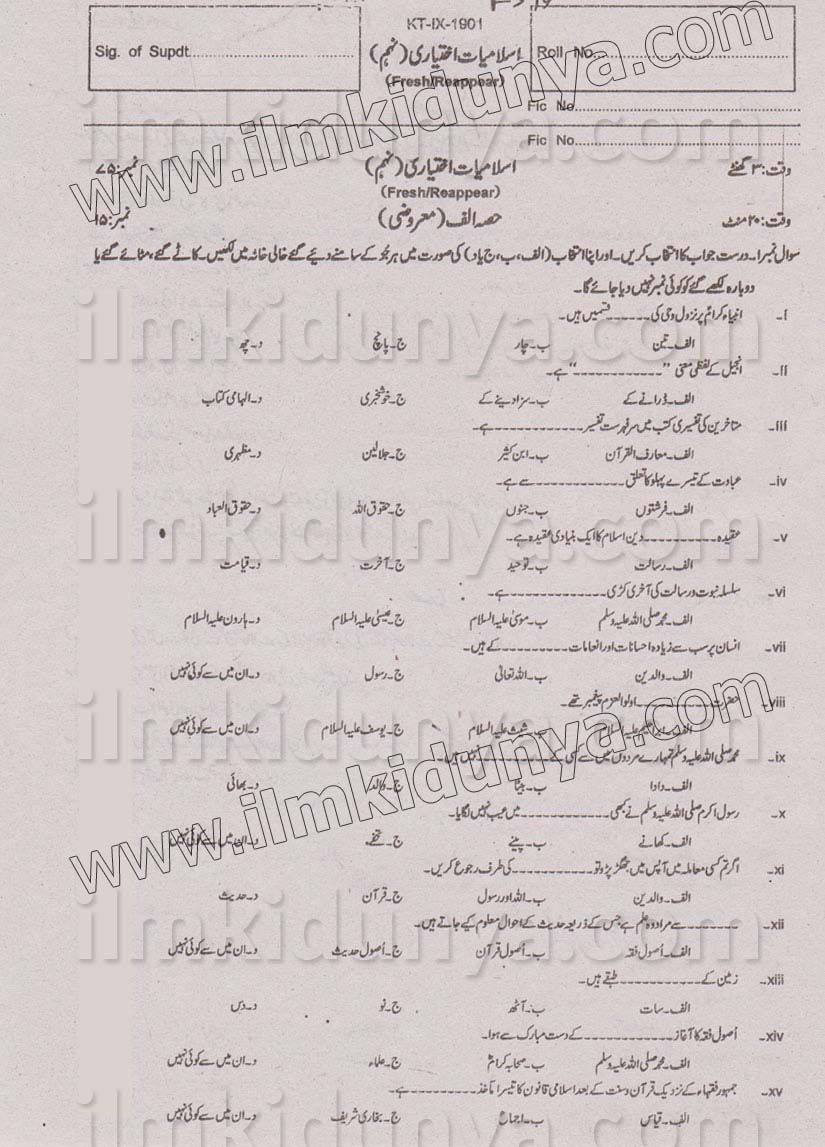 KT-IX-1901
Sig. of Supdt............ اسلامیات اختیاری (نہم) Roll No............
(Fresh/Reappear)
Fic No............
Fic No............
وقت: ۳ گھنٹے اسلامیات اختیاری (نہم) نمبر: ۷۵
(Fresh/Reappear)
وقت: ۲۰ منٹ حصہ الف (معروضی) نمبر: ۱۵
سوال نمبر ا۔ درست جواب کا انتخاب کریں۔ اور اپنا انتخاب (الف، ب، ج یا د) کی صورت میں ہر جُو کے سامنے دیئے گئے خالی خانہ میں لکھیں۔ کاٹے گئے، مٹائے گئے یا
دوبارہ لکھے گئے کو کوئی نمبر نہیں دیا جائے گا۔
i۔ انبیاء کرامؑ پر نزول وحی کی ------ قسمیں ہیں۔
الف۔ تین ب۔ چار ج۔ پانچ د۔ چھ
ii۔ انجیل کے لفظی معنی "------------" ہے۔
الف۔ ڈرانے کے ب۔ سزا دینے کے ج۔ خوشخبری د۔ الہامی کتاب
iii۔ متاخرین کی تفسیری کتب میں سرفہرست تفسیر ------------ ہے۔
الف۔ معارف القرآن ب۔ ابن کثیر ج۔ جلالین د۔ مظہری
iv۔ عبادت کے تیسرے پہلو کا تعلق ------------ سے ہے۔
الف۔ فرشتوں ب۔ جنوں ج۔ حقوق اللہ د۔ حقوق العباد
v۔ عقیدہ ---------- دین اسلام کا ایک بنیادی عقیدہ ہے۔
الف۔ رسالت ب۔ توحید ج۔ آخرت د۔ قیامت
vi۔ سلسلہ نبوت و رسالت کی آخری کڑی ------------ ہے۔
الف۔ محمد صلی اللہ علیہ وسلم ب۔ موسیٰ علیہ السلام ج۔ عیسیٰ علیہ السلام د۔ ہارون علیہ السلام
vii۔ انسان پر سب سے زیادہ احسانات اور انعامات ---------- کے ہیں۔
الف۔ والدین ب۔ اللہ تعالیٰ ج۔ رسول د۔ ان میں سے کوئی نہیں
viii۔ حضرت ------------ اولوالعزم پیغمبر تھے۔
الف۔ ابراہیم علیہ السلام ب۔ شیث علیہ السلام ج۔ یوسف علیہ السلام د۔ ان میں سے کوئی نہیں
ix۔ محمد صلی اللہ علیہ وسلم تمہارے مردوں میں سے کسی کے ---------- نہیں ہیں۔
الف۔ دادا ب۔ بیٹا ج۔ والد د۔ بھائی
x۔ رسول اکرم صلی اللہ علیہ وسلم نے کبھی ---------- میں عیب نہیں لگایا۔
الف۔ کھانے ب۔ پینے ج۔ تحفے د۔ ان میں سے کوئی نہیں
xi۔ اگر تم کسی معاملہ میں آپس میں جھگڑ پڑو تو ---------- کی طرف رجوع کریں۔
الف۔ والدین ب۔ اللہ اور رسول ج۔ قرآن د۔ حدیث
xii۔ -------- سے مراد وہ علم ہے جس کے ذریعہ حدیث کے احوال معلوم کیے جاتے ہیں۔
الف۔ اُصول فقہ ب۔ اُصول قرآن ج۔ اُصول حدیث د۔ ان میں سے کوئی نہیں
xiii۔ زمین کے ------------ طبقے ہیں۔
الف۔ سات ب۔ آٹھ ج۔ نو د۔ دس
xiv۔ اُصول فقہ کا آغاز ------------ کے دست مبارک سے ہوا۔
الف۔ محمد صلی اللہ علیہ وسلم ب۔ صحابہ کرامؓ ج۔ علماء د۔ ان میں سے کوئی نہیں
xv۔ جمہور فقہاء کے نزدیک قرآن و سنت کے بعد اسلامی قانون کا تیسرا ماخذ ---------- ہے۔
الف۔ قیاس ب۔ اجماع ج۔ بخاری شریف د۔ ان میں سے کوئی نہیں
www.ilmkidunya.com
www.ilmkidunya.com
ilmkidunya.com
ilmkidunya.com
ilmkidunya.com
ilmkidunya.com
ilmkidunya.com
ilmkidunya.com